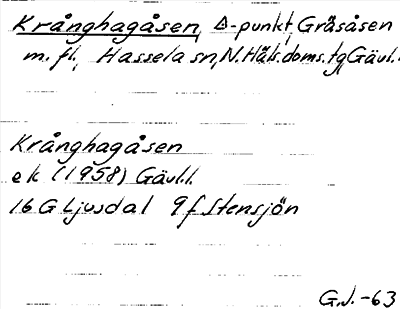 Krånghagåsen, Δ-punkt, Gräsåsen
m.fl., Hassela sn, N.Häls.doms.tg, Gävl.l.
Krånghagåsen
ek (1958) Gävl.l.
16 G Ljusdal 9f Stensjön
G.J.-63